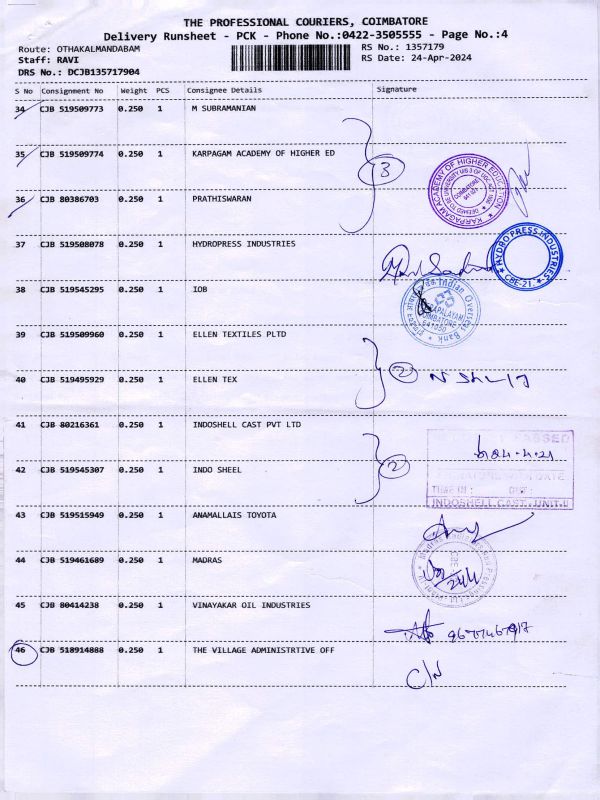 THE PROFESSIONAL COURIERS, COIMBATORE
Delivery Runsheet - PCK - Phone No.:0422-3505555 - Page No.:4
Route: OTHAKALMANDABAM RS No.: 1357179
Staff: RAVI RS Date: 24-Apr-2024
DRS No.: DCJB135717904
S No Consignment No Weight PCS Consignee Details Signature
34 CJB 519509773 0.250 1 M SUBRAMANIAN
35 CJB 519509774 0.250 1 KARPAGAM ACADEMY OF HIGHER ED
3
KARPAGAM ACADEMY OF HIGHER EDUCATION
36 CJB 80386703 0.250 1 PRATHISWARAN
37 CJB 519508078 0.250 1 HYDROPRESS INDUSTRIES
HYDRO PRESS INDUSTRIES
CBE-21.
38 CJB 519545295 0.250 1 IOB
Indian Overseas Bank
COIMBATORE
641050
39 CJB 519509960 0.250 1 ELLEN TEXTILES PLTD
2
40 CJB 519495929 0.250 1 ELLEN TEX
41 CJB 80216361 0.250 1 INDOSHELL CAST PVT LTD
2
42 CJB 519545307 0.250 1 INDO SHEEL
TIME IN :
INDOSHELL CAST. UNIT-II
43 CJB 519515949 0.250 1 ANAMALLAIS TOYOTA
44 CJB 519461689 0.250 1 MADRAS
24/4
45 CJB 80414238 0.250 1 VINAYAKAR OIL INDUSTRIES
46 CJB 518914888 0.250 1 THE VILLAGE ADMINISTRTIVE OFF
C/N